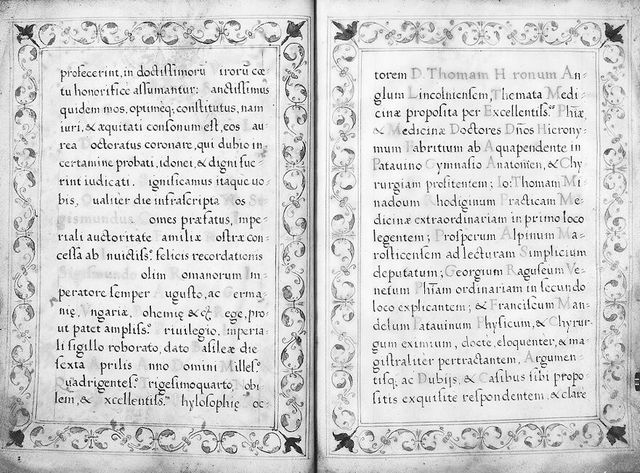 profecerint, in doctissimorũ irorũ cœ
tu honorifice assumantur: anctissimus
quidem mos, optimeq; constitutus, nam
iuri, & æquitati consonum est, eos Lau=
rea Doctoratus coronare, qui dubio in
certamine probati, idonei, & digni fue=
rint iudicati. Significamus itaque uo=
bis, Qualiter die infrascripta Nos Si=
gismundus Comes præfatus, Impe=
riali auctoritate Familiæ nostræ con=
cessa ab Inuictiss. felicis recordationis
Sigismundo olim Romanorum Im=
peratore semper Augusto, ac Germa=
nię, Vngariæ, ohemię & Rege, pro=
ut patet ampliss. Priuilegio, Imperia=
li sigillo roborato, dato Basileæ die
sexta Aprilis Anno Domini Milles.
Quadrigentes. Trigesimoquarto, obi=
lem, & xcellentiss. hylosophię oc=
torem D. Thomam H ronum An=
glum Lincolniensem, Themata Medi=
cinæ proposita per Excellentiss. Phiæ,
& Medicinæ Doctores Dños Hierony=
mum Fabritium ab Aquapendente in
Patauino Gymnasio Anatomen, & Chy=
rurgiam profitentem; Io: Thomam Mi=
nadoum Rhodiginum Practicam Me=
dicinæ extraordinariam in primo loco
legentem; Prosperum Alpinum Ma=
rosticensem ad lecturam Simplicium
deputatum; Georgium Raguseum Ve=
netum Phiam ordinariam in secundo
loco explicantem; & Franciscum Man=
delum Patauinum Physicum, & Chyrur=
gum eximium, docte, eloquenter, & ma=
gistraliter pertractantem, Argumen=
tisq; ac Dubijs, & Casibus sibi propo
sitis exquisite respondentem, & clare